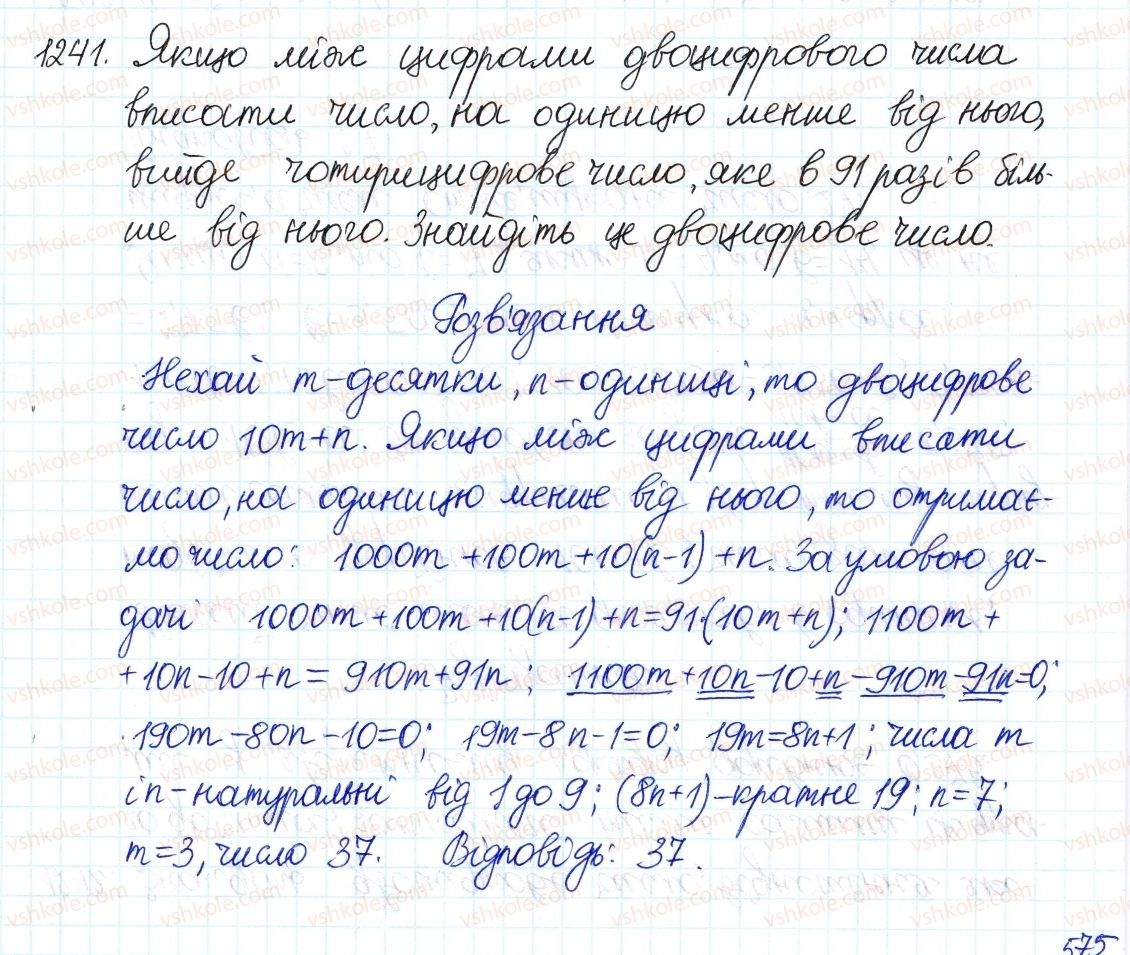 1241. Якщо між цифрами двоцифрового числа
вписати число, на одиницю менше від нього,
вийде чотирицифрове число, яке в 91 разів біль-
ше від нього. Знайдіть це двоцифрове число.
Розв'язання
Нехай m-десятки, n-одиниці, то двоцифрове
число 10m+n. Якщо між цифрами вписати
число, на одиницю менше від нього, то отримає-
мо число: 1000m+100m+10(n-1)+n. За умовою за-
дачі 1000m+100m+10(n-1)+n=91·(10m+n); 1100m+
+10n-10+n=910m+91n; 1100m+10n-10+n-910m-91n=0;
190m-80n-10=0; 19m-8n-1=0; 19m=8n+1; числа m
і n-натуральні від 1 до 9; (8n+1)-кратне 19; n=7;
m=3, число 37. Відповідь: 37.
575